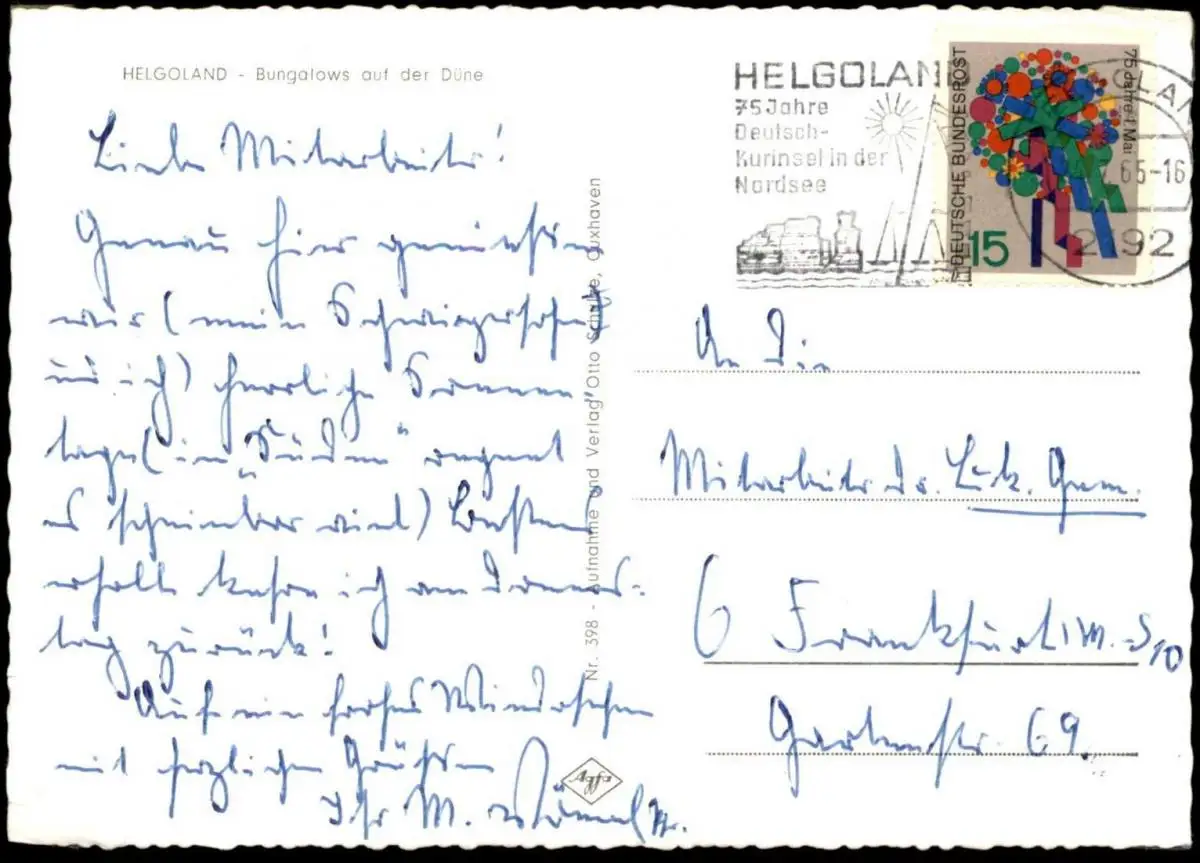 HELGOLAND - Bungalows auf der Düne
Liebe Mitarbeiter!
Genau hier geniessen
wir (mein Schwiegersohn
und ich) herrliche Sonnen-
tage (im „Süden“ regnet
es scheinbar viel) Bestens
erholt kehre ich am Donners-
tag zurück!
Auf ein frohes Wiedersehen
mit herzlichen Grüßen
Ihr M.
Nr. 398 - Aufnahme und Verlag Otto Schulze, Cuxhaven
Agfa
HELGOLAND
75 Jahre
Deutsch-
Kurinsel in der
Nordsee
DEUTSCHE BUNDESPOST
75 Jahre 1. Mai
15
65-16
2192
An die
Mitarbeiter d. Luk. Gem.
6 Frankfurt/M.-S 10
Gartenstr. 69.